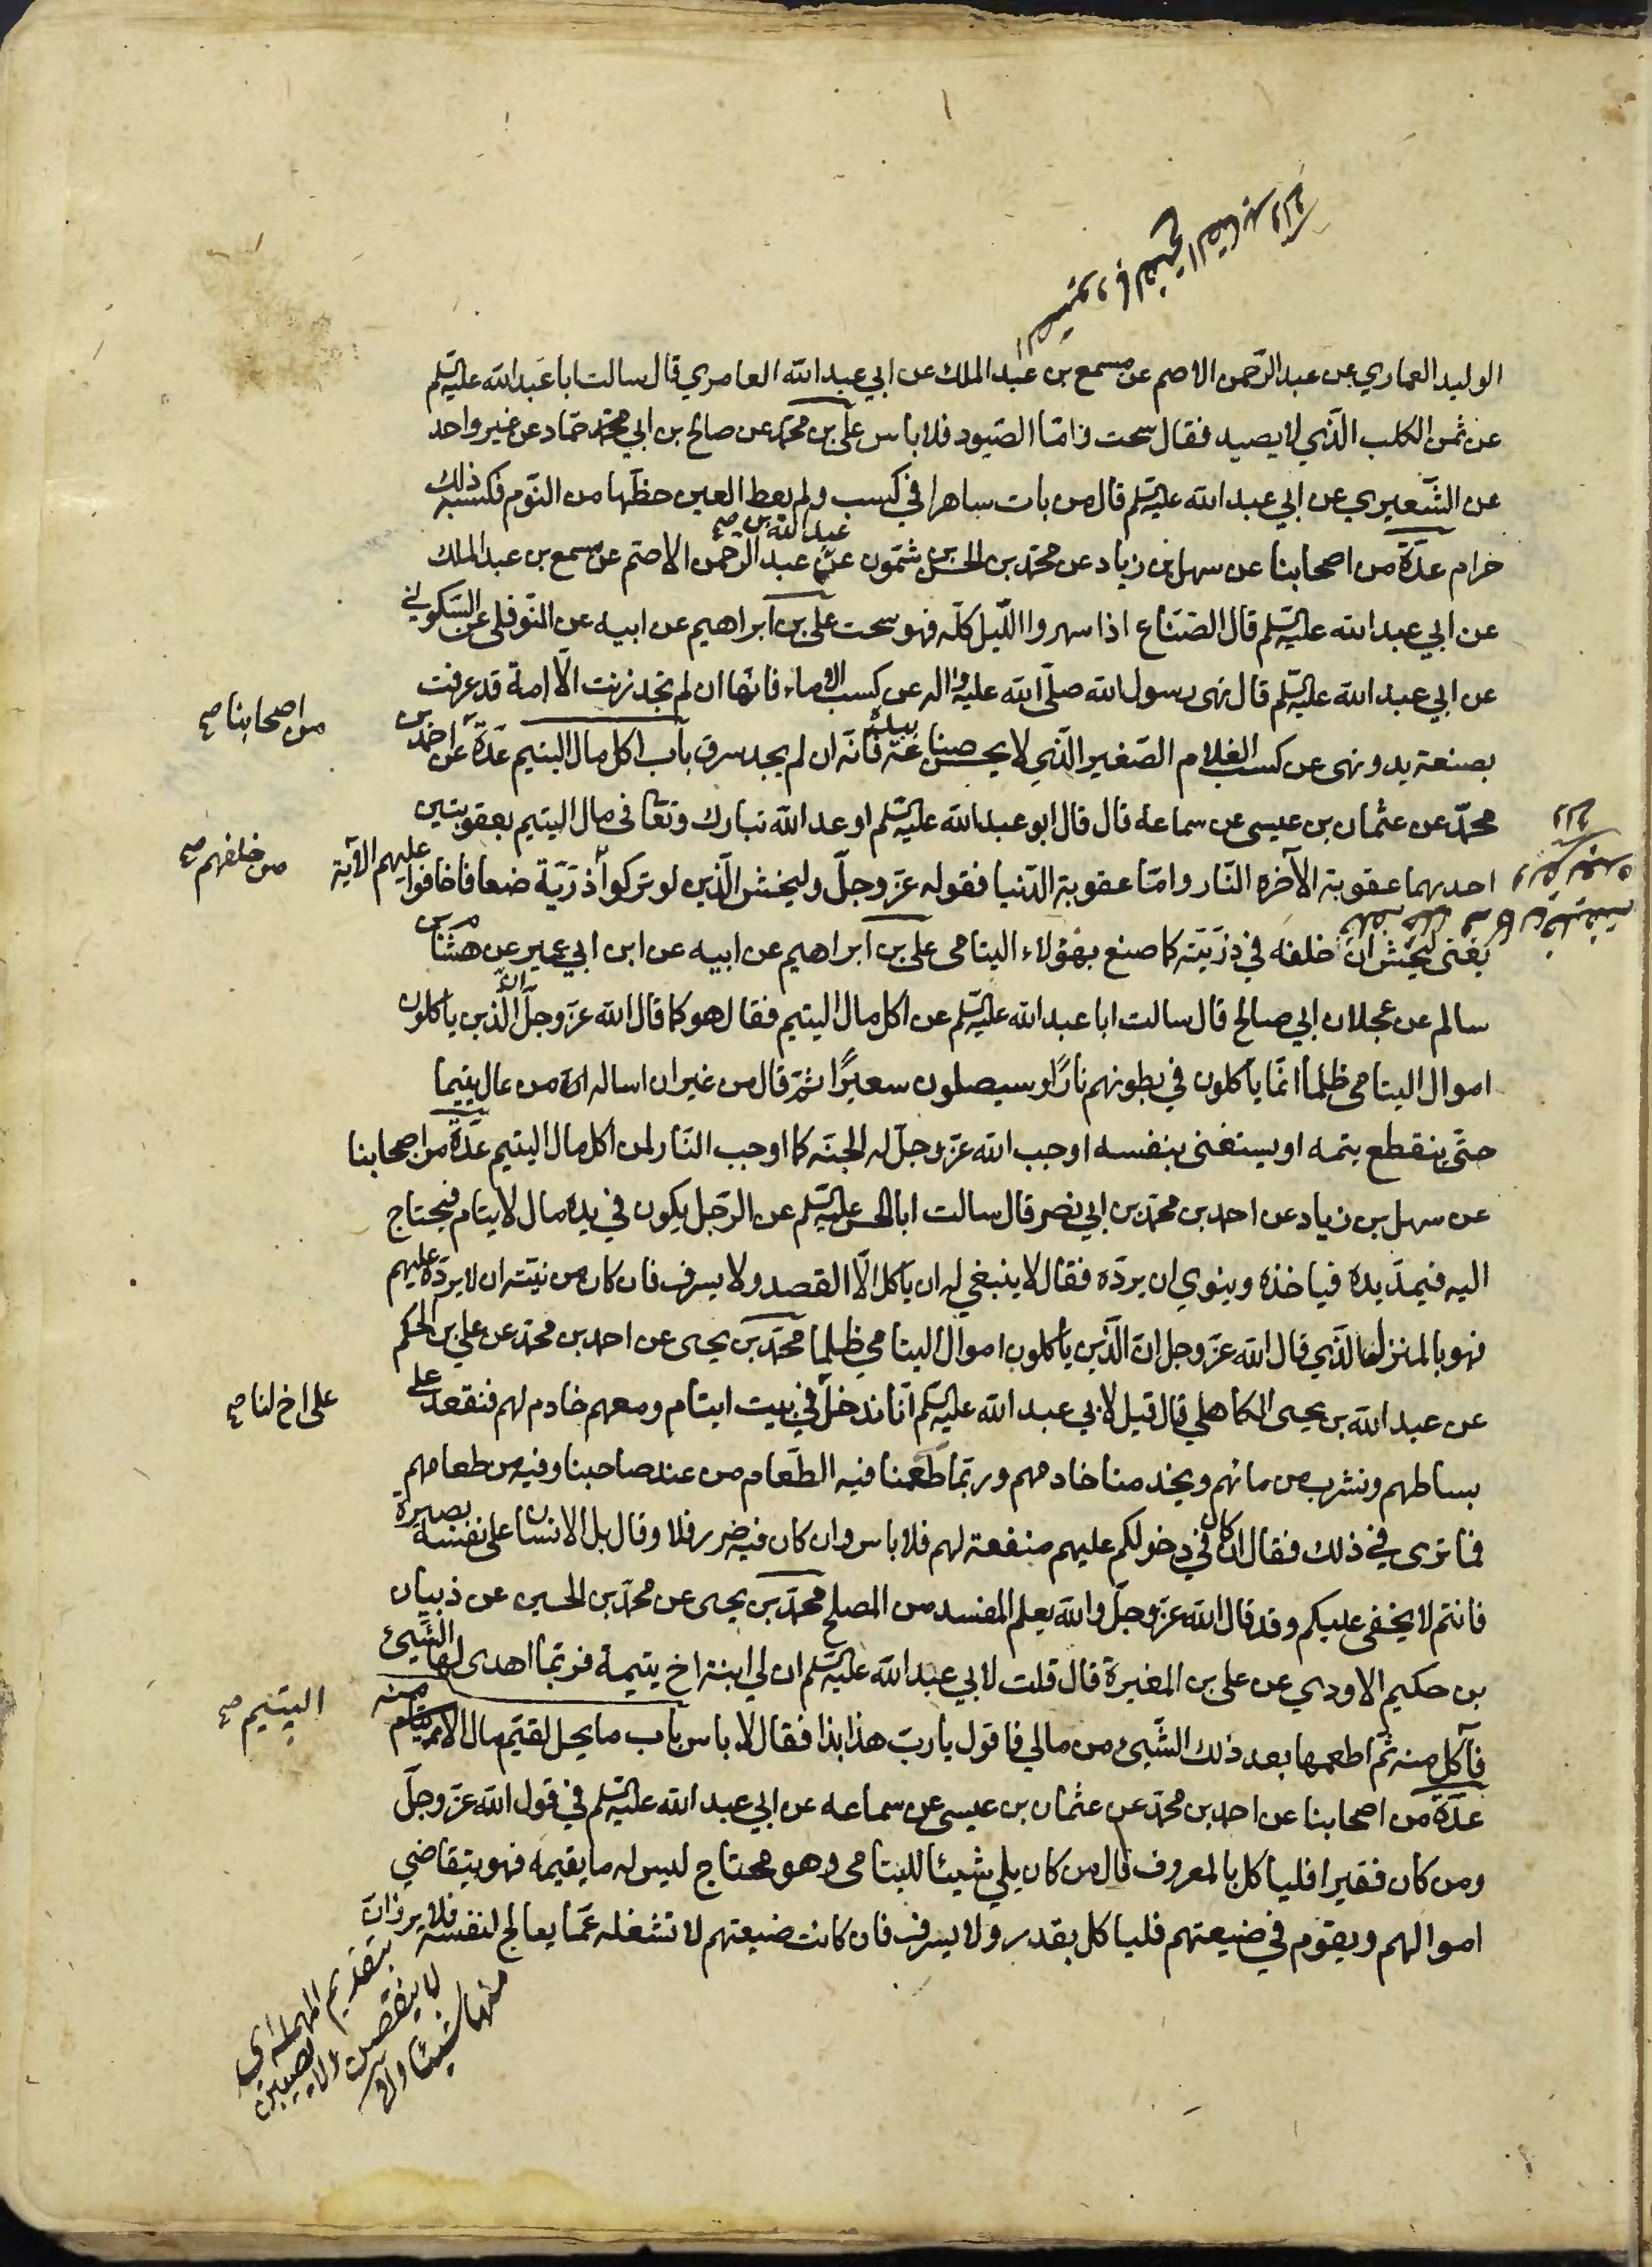 الوليد العماري عن عبد الرّحمن الاصم عن مسمع بن عبد الملك عن ابي عبد الله العامري قال سالت ابا عبد الله عليه السّلم
عن ثمن الكلب الّذي لا يصيد فقال سحت فامّا الصّيود فلا باس علي بن محمّد عن صالح بن ابي حمّاد عن غير واحد
عن الشّعيري عن ابي عبد الله عليه السّلم قال من بات ساهرا في كسب ولم يعط العين حظّها من النّوم فكسبه ذلك
عبد الله بن صح
حرام عدّة من اصحابنا عن سهل بن زياد عن محمّد بن الحسن بن شمّون عن عبد الرّحمن الاصمّ عن مسمع بن عبد الملك
عن ابي عبد الله عليه السّلم قال الصّنّاع اذا سهروا اللّيل كلّه فهو سحت علي بن ابراهيم عن ابيه عن النّوفلي عن السّكوني
عن ابي عبد الله عليه السّلم قال نهى رسول الله صلّى الله عليه واله عن كسب الاماء فانّها ان لم تجد زنت الّا امة قد عرفت
من اصحابنا صح
بصنعة يد ونهى عن كسب الغلام الصّغير الّذي لا يحسن صناعة بيده فانّه ان لم يجد سرق باب اكل مال اليتيم عدّة عن احمد بن
محمّد عن عثمان بن عيسى عن سماعة قال قال ابو عبد الله عليه السّلم اوعد الله تبارك وتعالى في مال اليتيم بعقوبتين
من خلفهم صح
احديهما عقوبة الآخرة النّار وامّا عقوبة الدّنيا فقوله عزّ وجلّ وليخش الّذين لو تركوا ذرّيّة ضعافا خافوا عليهم الآية
يعنى ليخش ان اخلفه في ذرّيّته كما صنع بهؤلاء اليتامى علي بن ابراهيم عن ابيه عن ابن ابي عمير عن هشام بن
سالم عن عجلان ابي صالح قال سالت ابا عبد الله عليه السّلم عن اكل مال اليتيم فقال هو كما قال الله عزّ وجلّ انّ الّذين ياكلون
اموال اليتامى ظلما انّما ياكلون في بطونهم نارًا وسيصلون سعيرًا ثمّ قال من غير ان اساله من عال يتيما
حتّى ينقطع يتمه او يستغنى بنفسه اوجب الله عزّ وجلّ له الجنّة كما اوجب النّار لمن اكل مال اليتيم عدّة من اصحابنا
عن سهل بن زياد عن احمد بن محمّد بن ابي نصر قال سالت ابا الحسن عليه السّلم عن الرّجل يكون في يده مال لايتام فيحتاج
اليه فيمدّ يده فياخذه وينوي ان يردّه فقال لا ينبغي له ان ياكل الّا القصد ولا يسرف فان كان من نيّته ان لا يردّه عليهم
فهو بالمنزل الّذي قال الله عزّ وجل انّ الّذين ياكلون اموال اليتامى ظلما محمّد بن يحيى عن احمد بن محمّد عن علي بن الحكم
على اخ لنا صح
عن عبد الله بن يحيى الكاهلي قال قيل لابي عبد الله عليه السّلم انّا ندخل في بيت ايتام ومعهم خادم لهم فنقعد على
بساطهم ونشرب من مائهم ويخدمنا خادمهم وربّما طعمنا فيه الطّعام من عند صاحبنا وفيه من طعامهم
فما ترى في ذلك فقال ان كان في دخولكم عليهم منفعة لهم فلا باس وان كان فيه ضرر فلا وقال بل الانسان على نفسه بصيرة
فانتم لا يخفى عليكم وقد قال الله عزّ وجلّ والله يعلم المفسد من المصلح محمّد بن يحيى عن محمّد بن الحسين عن ذبيان
بن حكيم الاودي عن علي بن المغيرة قال قلت لابي عبد الله عليه السّلم ان لي ابنة اخ يتيمة فربّما اهدى لها الشّيئ
اليتيم صح
فآكل منه ثمّ اطعمها بعد ذلك الشّيئ من مالي فاقول يا ربّ هذا بذا فقال لا باس باب ما يحل لقيّم مال اليتيم منه
عدّة من اصحابنا عن احمد بن محمّد عن عثمان بن عيسى عن سماعة عن ابي عبد الله عليه السّلم في قول الله عزّ وجلّ
ومن كان فقيرا فلياكل بالمعروف قال من كان يلي شيئا لليتامى وهو محتاج ليس له ما يقيمه فهو يتقاضى
اموالهم ويقوم في ضيعتهم فلياكل بقدر ولا يسرف فان كانت ضيعتهم لا تشغله عمّا يعالج لنفسه فلا يرزانّ
بتقديم المهملة اي
لا ينقصن ولا يصيبن
منها شيئا وافي